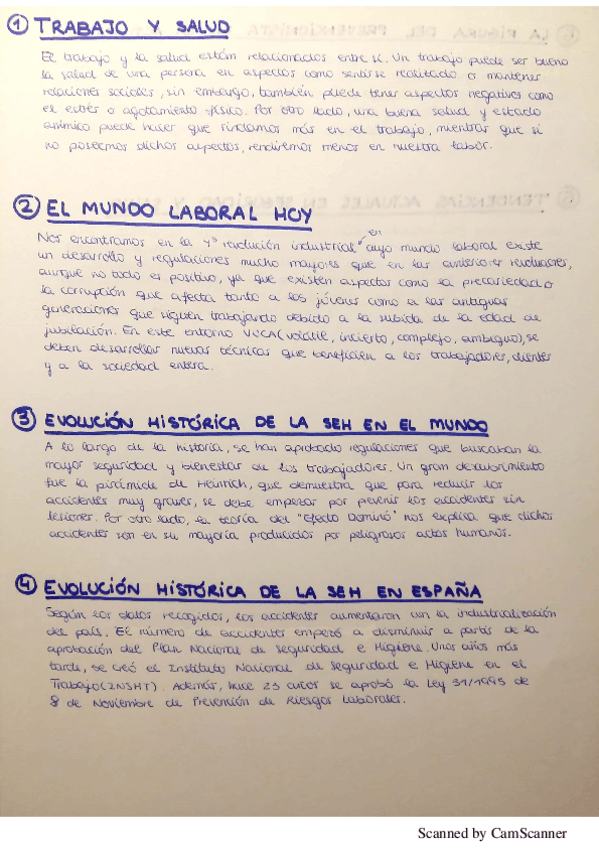 ① TRABAJO Y SALUD
El trabajo y la salud están relacionados entre sí. Un trabajo puede ser bueno
la salud de una persona en aspectos como sentirse realizado o mantener
relaciones sociales, sin embargo, también puede tener aspectos negativos como
el estrés o agotamiento físico. Por otro lado, una buena salud y estado
anímico puede hacer que rindamos más en el trabajo, mientras que si
no poseemos dichos aspectos, rendiremos menos en nuestra labor.
② EL MUNDO LABORAL HOY
en
Nos encontramos en la 4ª "revolución industrial" cuyo mundo laboral existe
un desarrollo y regulaciones mucho mayores que en las anteriores revoluciones,
aunque no todo es positivo, ya que existen aspectos como la precariedad o
la corrupción que afecta tanto a los jóvenes como a las antiguas
generaciones que siguen trabajando debido a la subida de la edad de
jubilación. En este entorno VUCA (volátil, incierto, complejo, ambiguo), se
deben desarrollar nuevas técnicas que beneficien a los trabajadores, clientes
y a la sociedad entera.
③ EVOLUCIÓN HISTÓRICA DE LA SEH EN EL MUNDO
A lo largo de la historia, se han aprobado regulaciones que buscaban la
mayor seguridad y bienestar de los trabajadores. Un gran descubrimiento
fue la pirámide de Heinrich, que demuestra que para reducir los
accidentes muy graves, se debe empezar por prevenir los accidentes sin
lesiones. Por otro lado, la teoría del "Efecto Dominó" nos explica que dichos
accidentes son en su mayoría producidos por peligrosos actos humanos.
④ EVOLUCIÓN HISTÓRICA DE LA SEH EN ESPAÑA
Según los datos recogidos, los accidentes aumentaron con la industrialización
del país. El número de accidentes empezó a disminuir a partir de la
aprobación del Plan Nacional de Seguridad e Higiene. Unos años más
tarde, se creó el Instituto Nacional de Seguridad e Higiene en el
Trabajo (INSHT). Además, hace 23 años se aprobó la Ley 31/1995 de
8 de Noviembre de Prevención de Riesgos Laborales.
Scanned by CamScanner